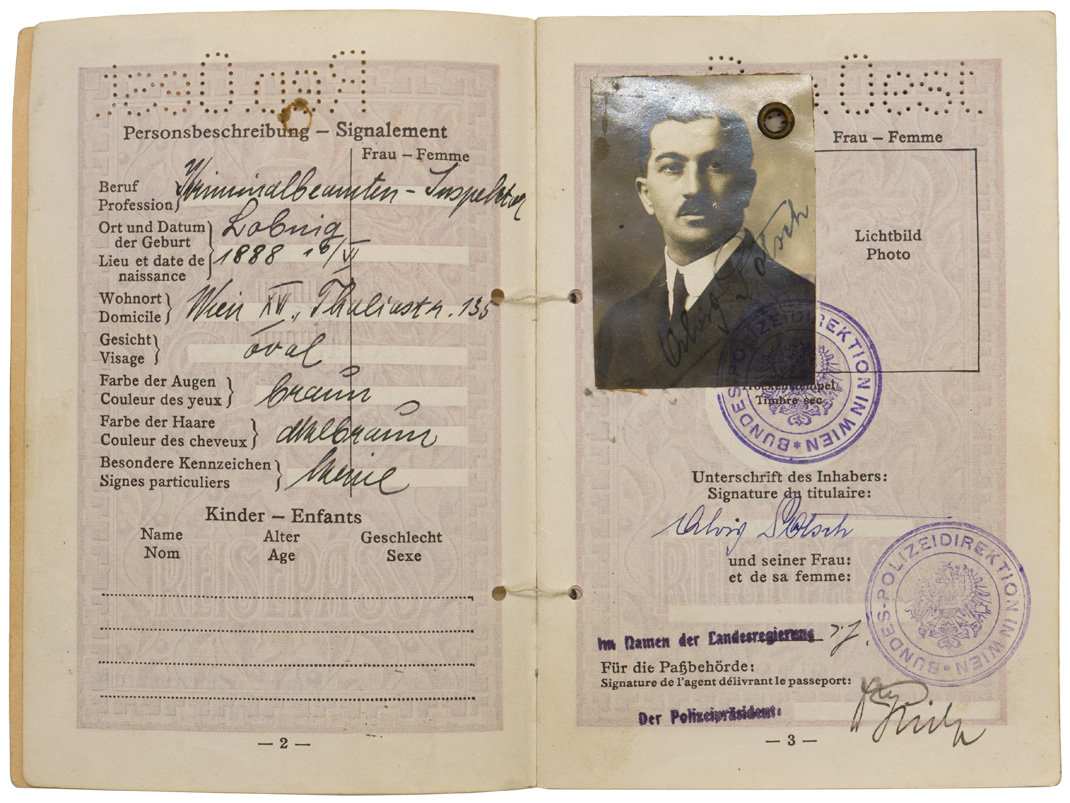 Rep. Oest.
Personsbeschreibung – Signalement
Frau – Femme
Beruf
Profession
Kriminalbeamten-Inspektor
Ort und Datum
der Geburt
Lieu et date de
naissance
Lobnig
1888 16/VI
Wohnort
Domicile
Wien XVI., Thaliastr. 135
Gesicht
Visage
oval
Farbe der Augen
Couleur des yeux
braun
Farbe der Haare
Couleur des cheveux
dklbraun
Besondere Kennzeichen
Signes particuliers
keine
Kinder – Enfants
Name Alter Geschlecht
Nom Age Sexe
REISEPASS
— 2 —
Oest.
Frau – Femme
Lichtbild
Photo
Trockenstempel
Timbre sec
BUNDES-POLIZEIDIREKTION IN WIEN
Unterschrift des Inhabers:
Signature du titulaire:
und seiner Frau:
et de sa femme:
BUNDES-POLIZEIDIREKTION IN WIEN
Im Namen der Landesregierung
Für die Paßbehörde:
Signature de l'agent délivrant le passeport:
Der Polizeipräsident:
— 3 —